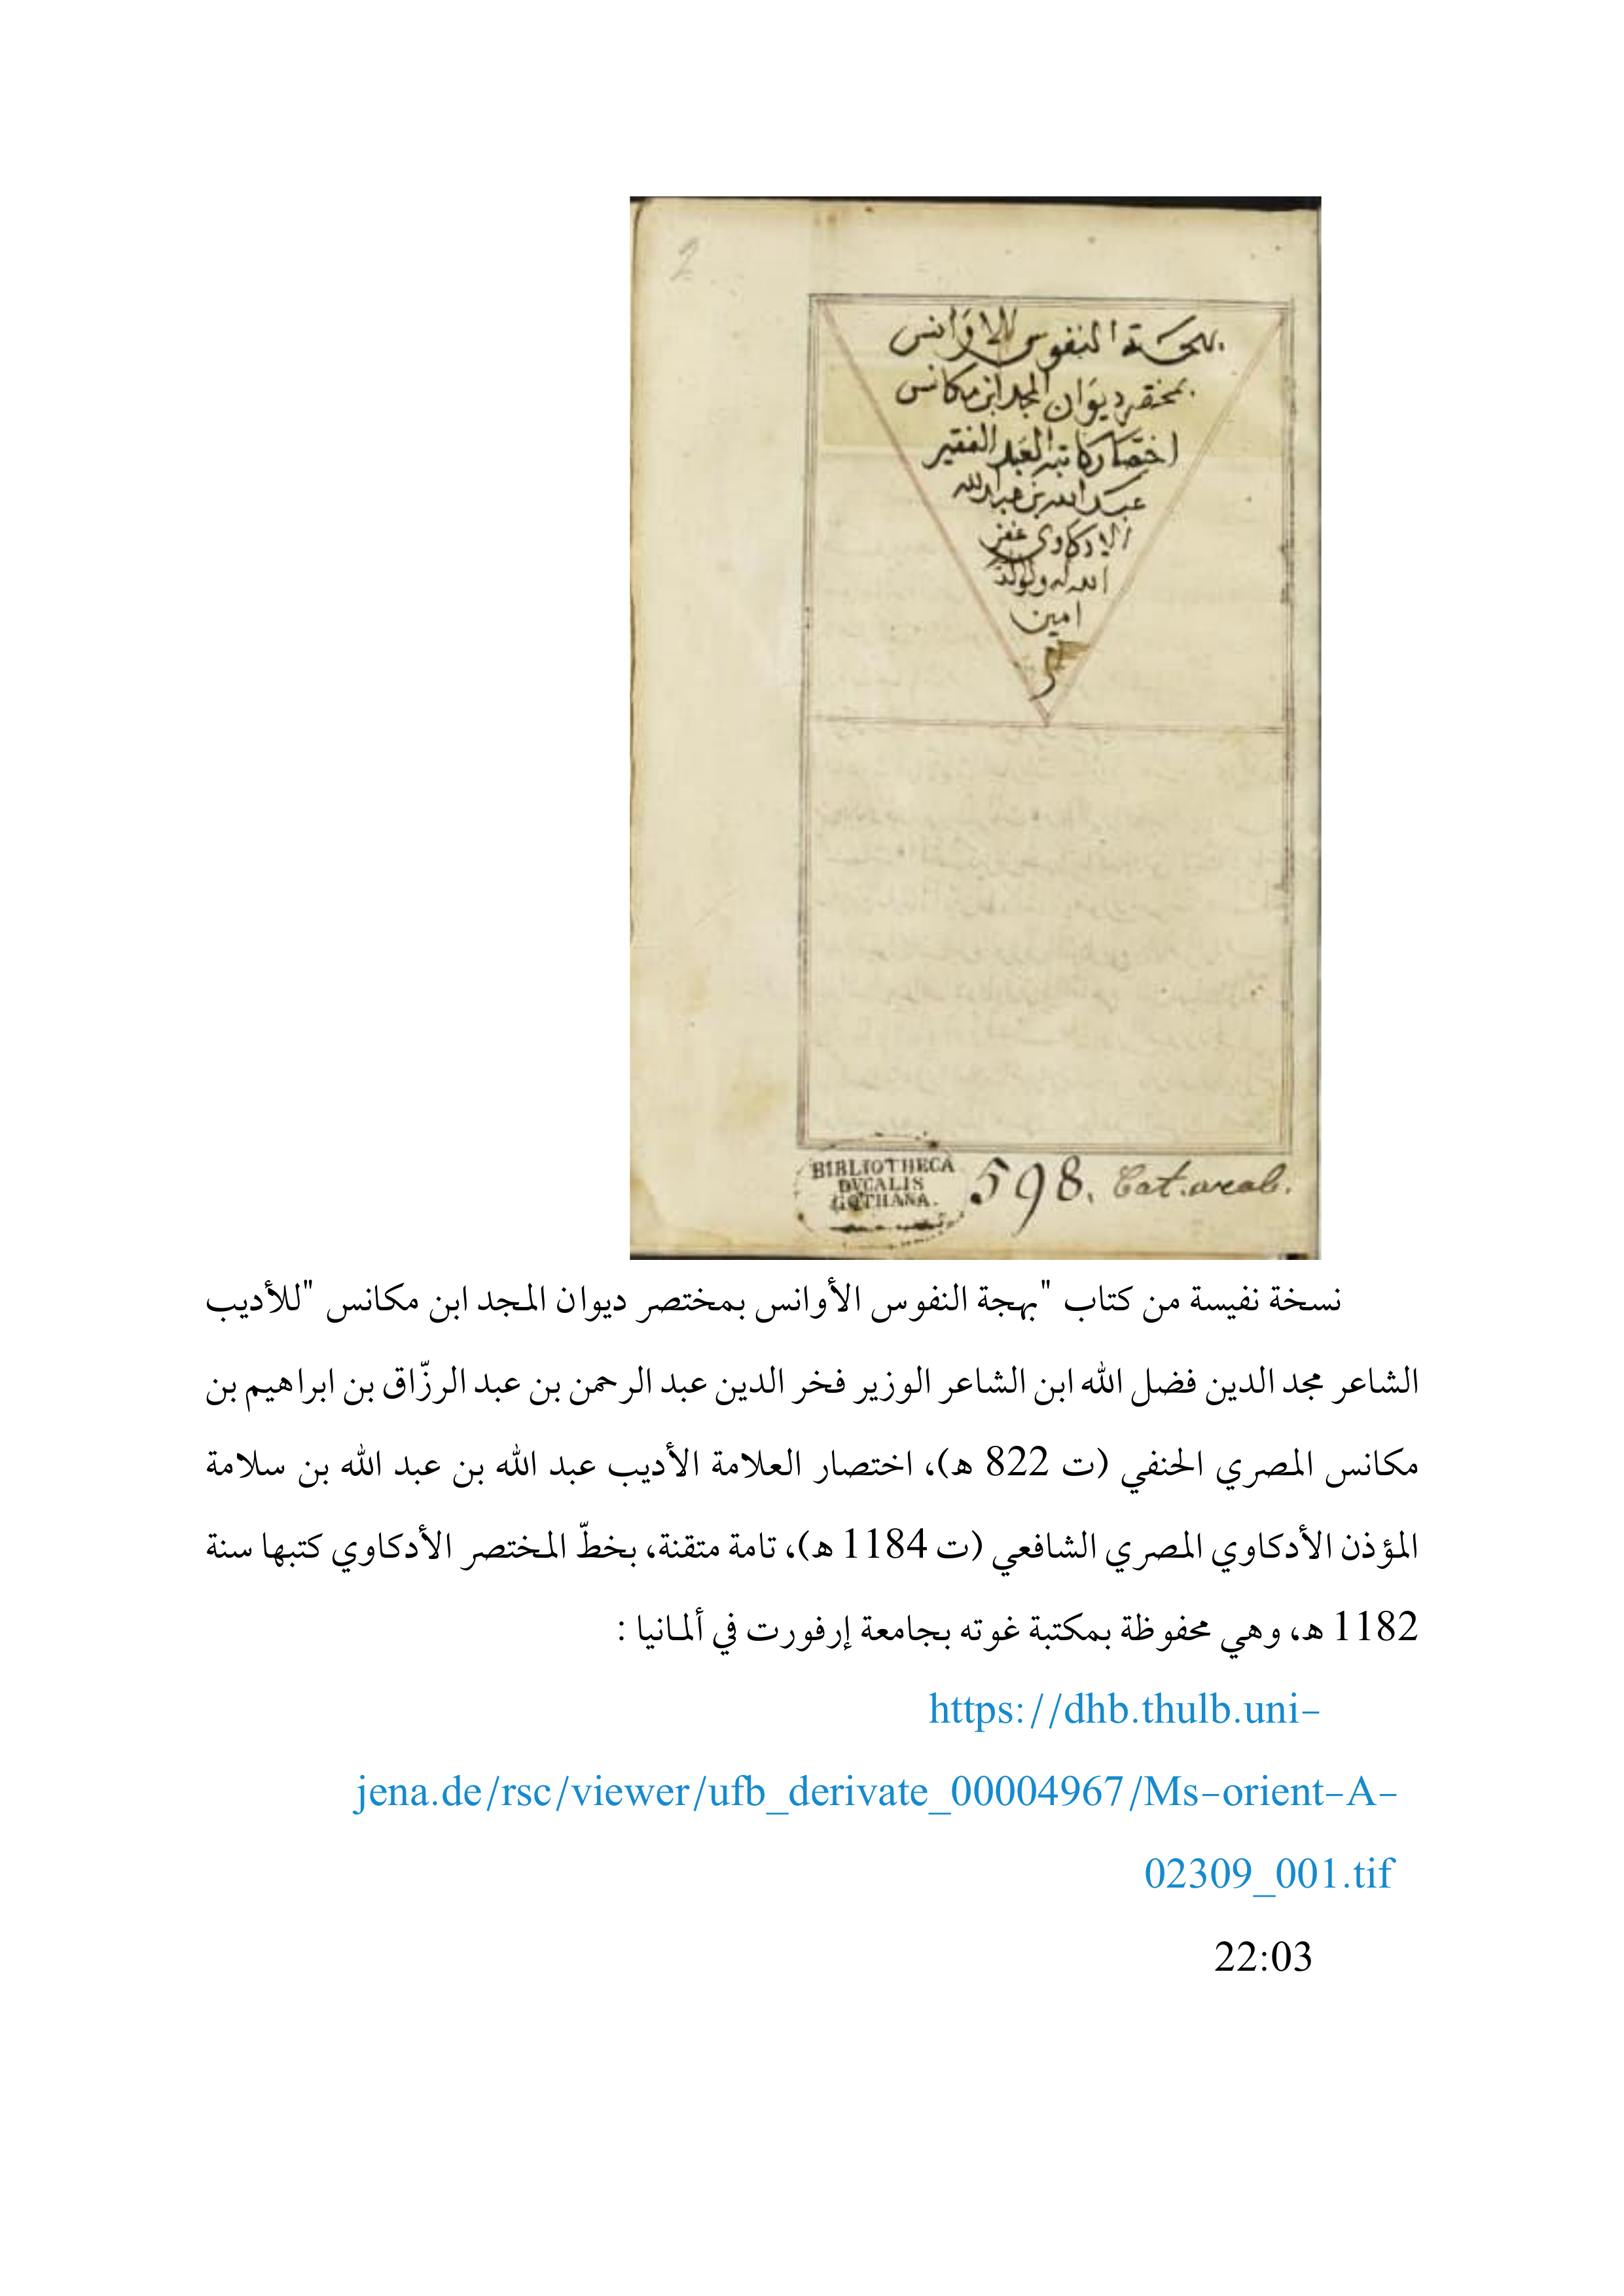 2
بهجة النفوس الاوانس
بمختصر ديوان المجد ابن مكانس
اختصار كاتبه العبد الفقير
عبد الله بن عبد الله
الادكاوي غفر
الله له ولوالديه
امين
BIBLIOTHECA
DVCALIS
GOTHANA.
598. Cat. arab.
نسخة نفيسة من كتاب "بهجة النفوس الأوانس بمختصر ديوان المجد ابن مكانس "للأديب
الشاعر مجد الدين فضل الله ابن الشاعر الوزير فخر الدين عبد الرحمن بن عبد الرزّاق بن ابراهيم بن
مكانس المصري الحنفي (ت 822 هـ)، اختصار العلامة الأديب عبد الله بن عبد الله بن سلامة
المؤذن الأدكاوي المصري الشافعي (ت 1184 هـ)، تامة متقنة، بخطّ المختصر الأدكاوي كتبها سنة
1182 هـ، وهي محفوظة بمكتبة غوته بجامعة إرفورت في ألمانيا :
https://dhb.thulb.uni-
jena.de/rsc/viewer/ufb_derivate_00004967/Ms-orient-A-
02309_001.tif
22:03